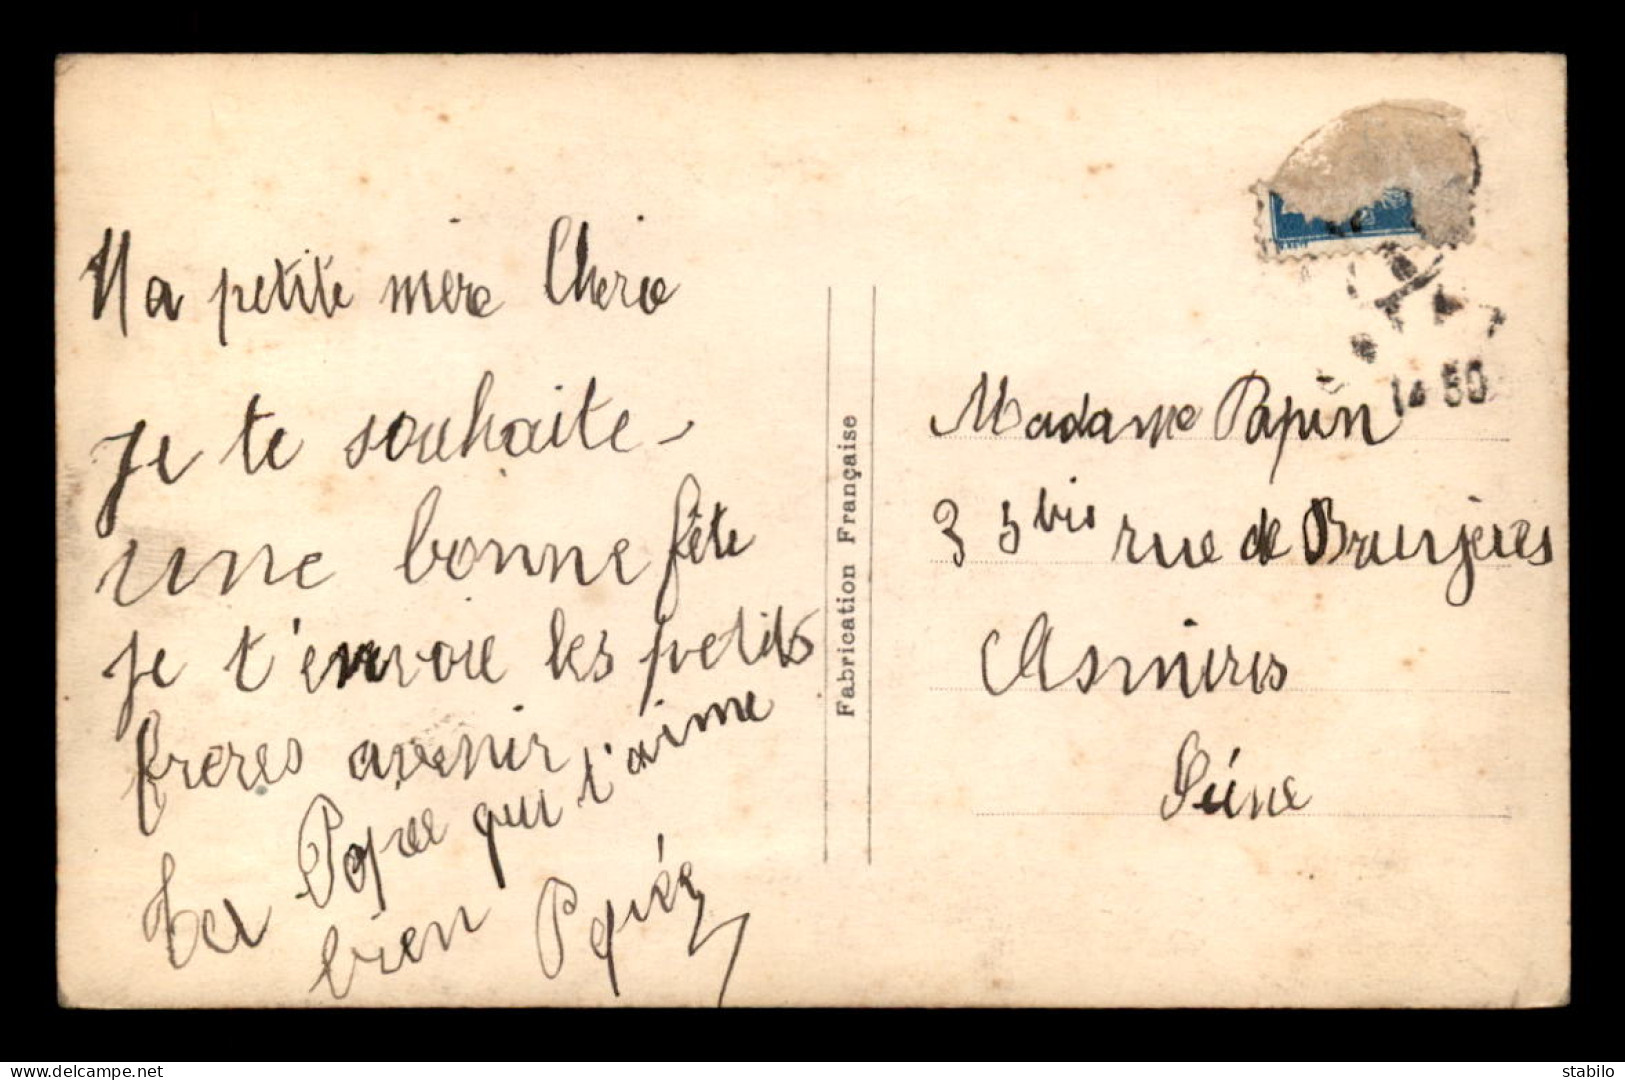 Ma petite mère Cherie
Je te souhaite
une bonne fête
je t'envoie les petits
freres avenir
qui t'aime
bien
Fabrication Française
14 50
Madame Papin
35 bis rue de Bruyeres
Asnieres
Séine
delcampe.net
stabilo